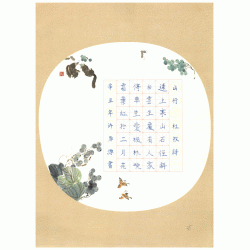 山行 杜牧詩
遠上寒山石徑斜
白雲生處有人家
停車坐愛楓林晚
霜葉紅於二月花
辛丑年